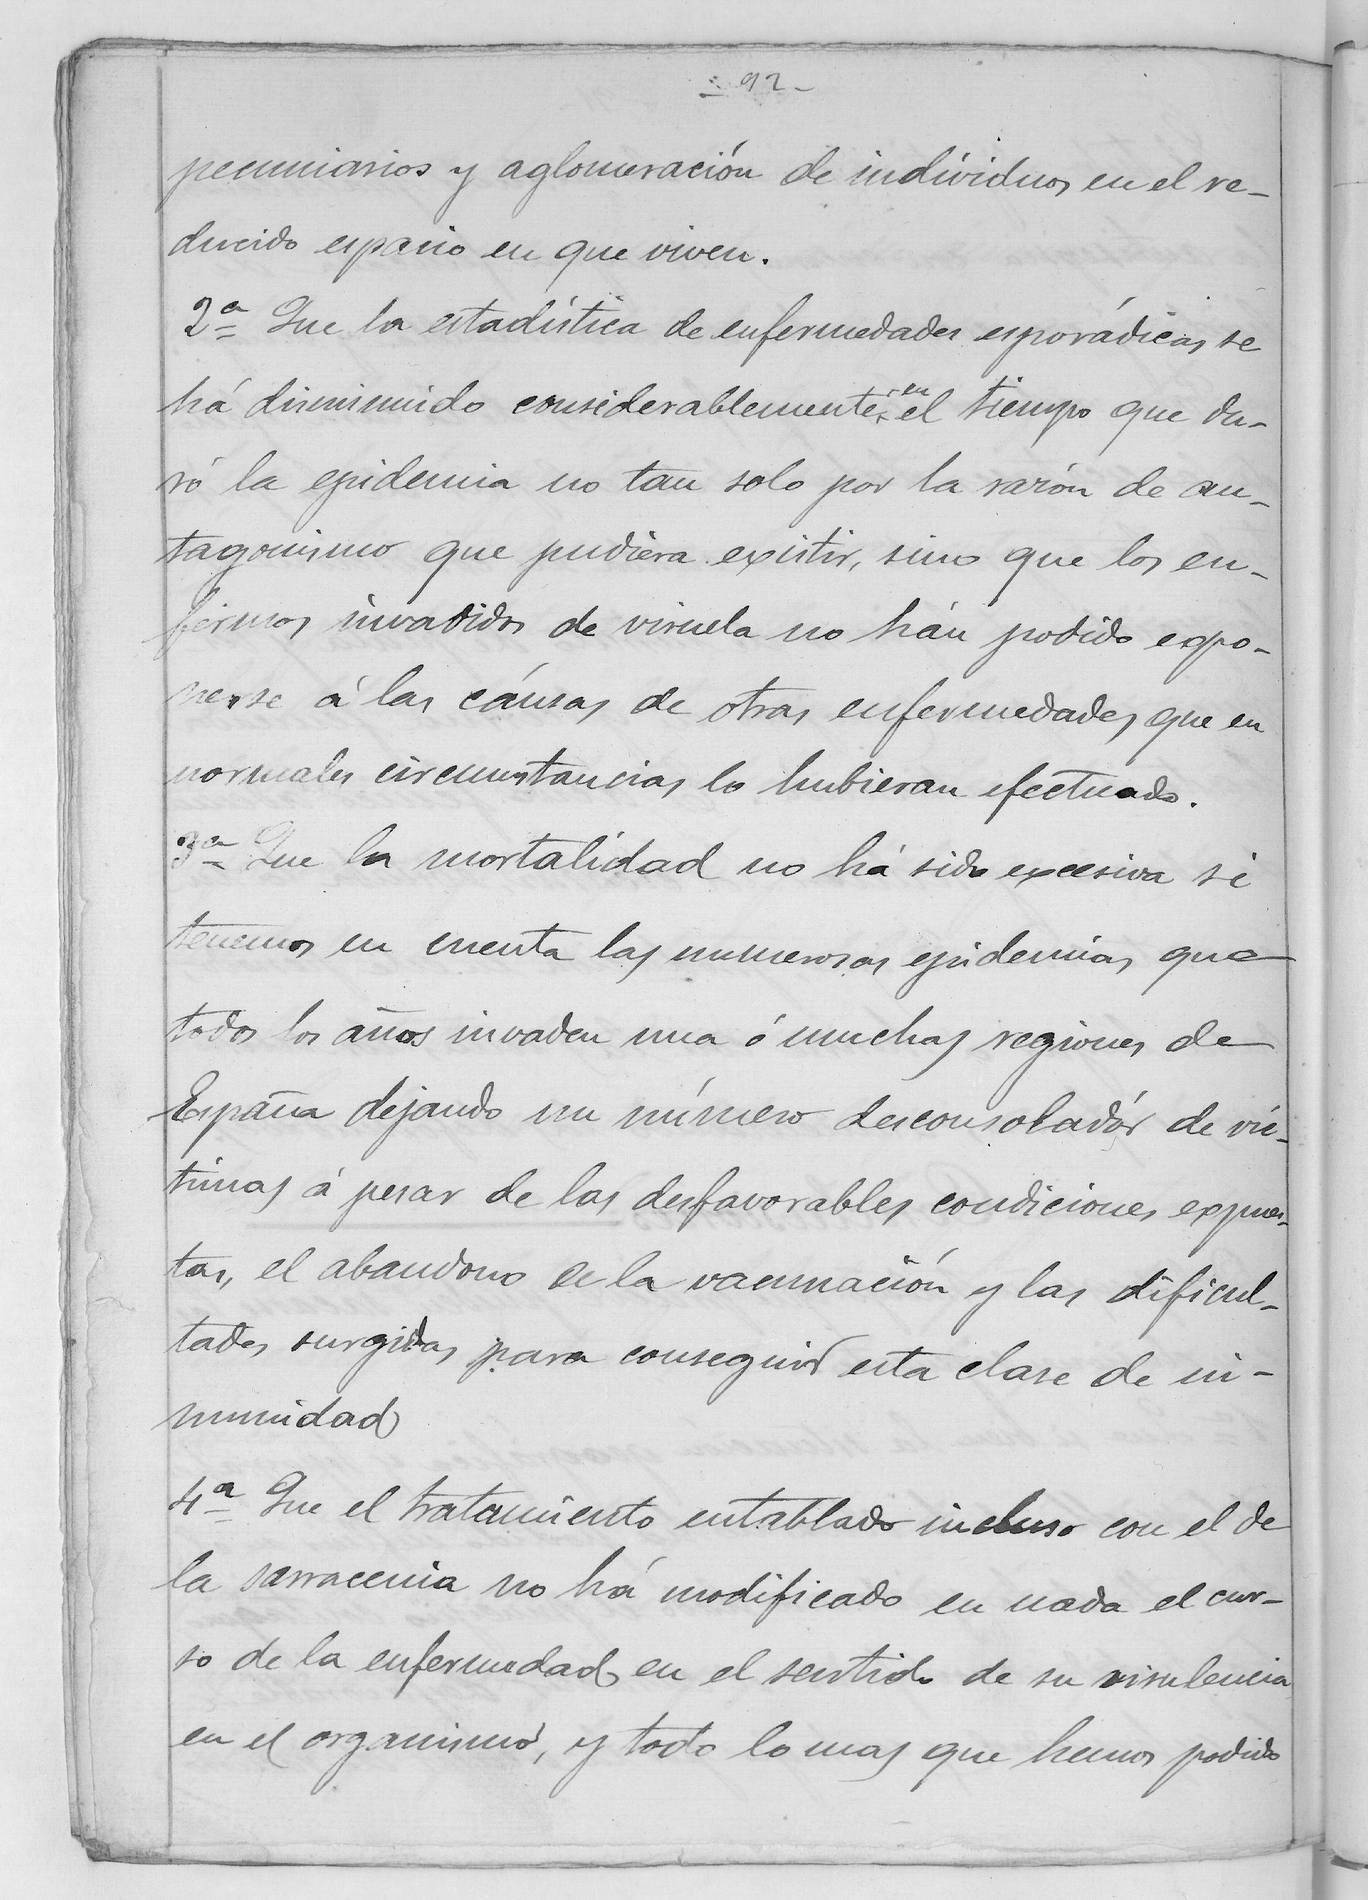 - 92 -
pecuniarios y aglomeración de indíviduos en el re-
ducido espacio en que viven.
2ª Que la estadística de enfermedades esporádicas se
há disminuido considerablemente, en el tiempo que du-
ró la epidemia no tan solo por la razón de an-
tagonismo que pudiera existir, sino que los en-
fermos invadidos de viruela no hán podido expo-
nerse á las cáusas de otras enfermedades que en
normales circunstancias lo hubieran efectuado.
3ª Que la mortalidad no há sido excesiva si
tenemos en cuenta las numerosas epidemias que
todos los años invaden una ó muchas regiones de
España dejando un número desconsoladór de víc-
timas á pesar de las desfavorables condiciones expues-
tas, el abandono de la vacunación y las dificul-
tades surgidas para conseguir esta clase de in-
munidad
4ª Que el tratamiento entablado incluso con el de
la sarracenia no há modificado en nada el cur-
so de la enfermedad en el sentido de su virulencia
en el organismo, y todo lo mas que hemos podido